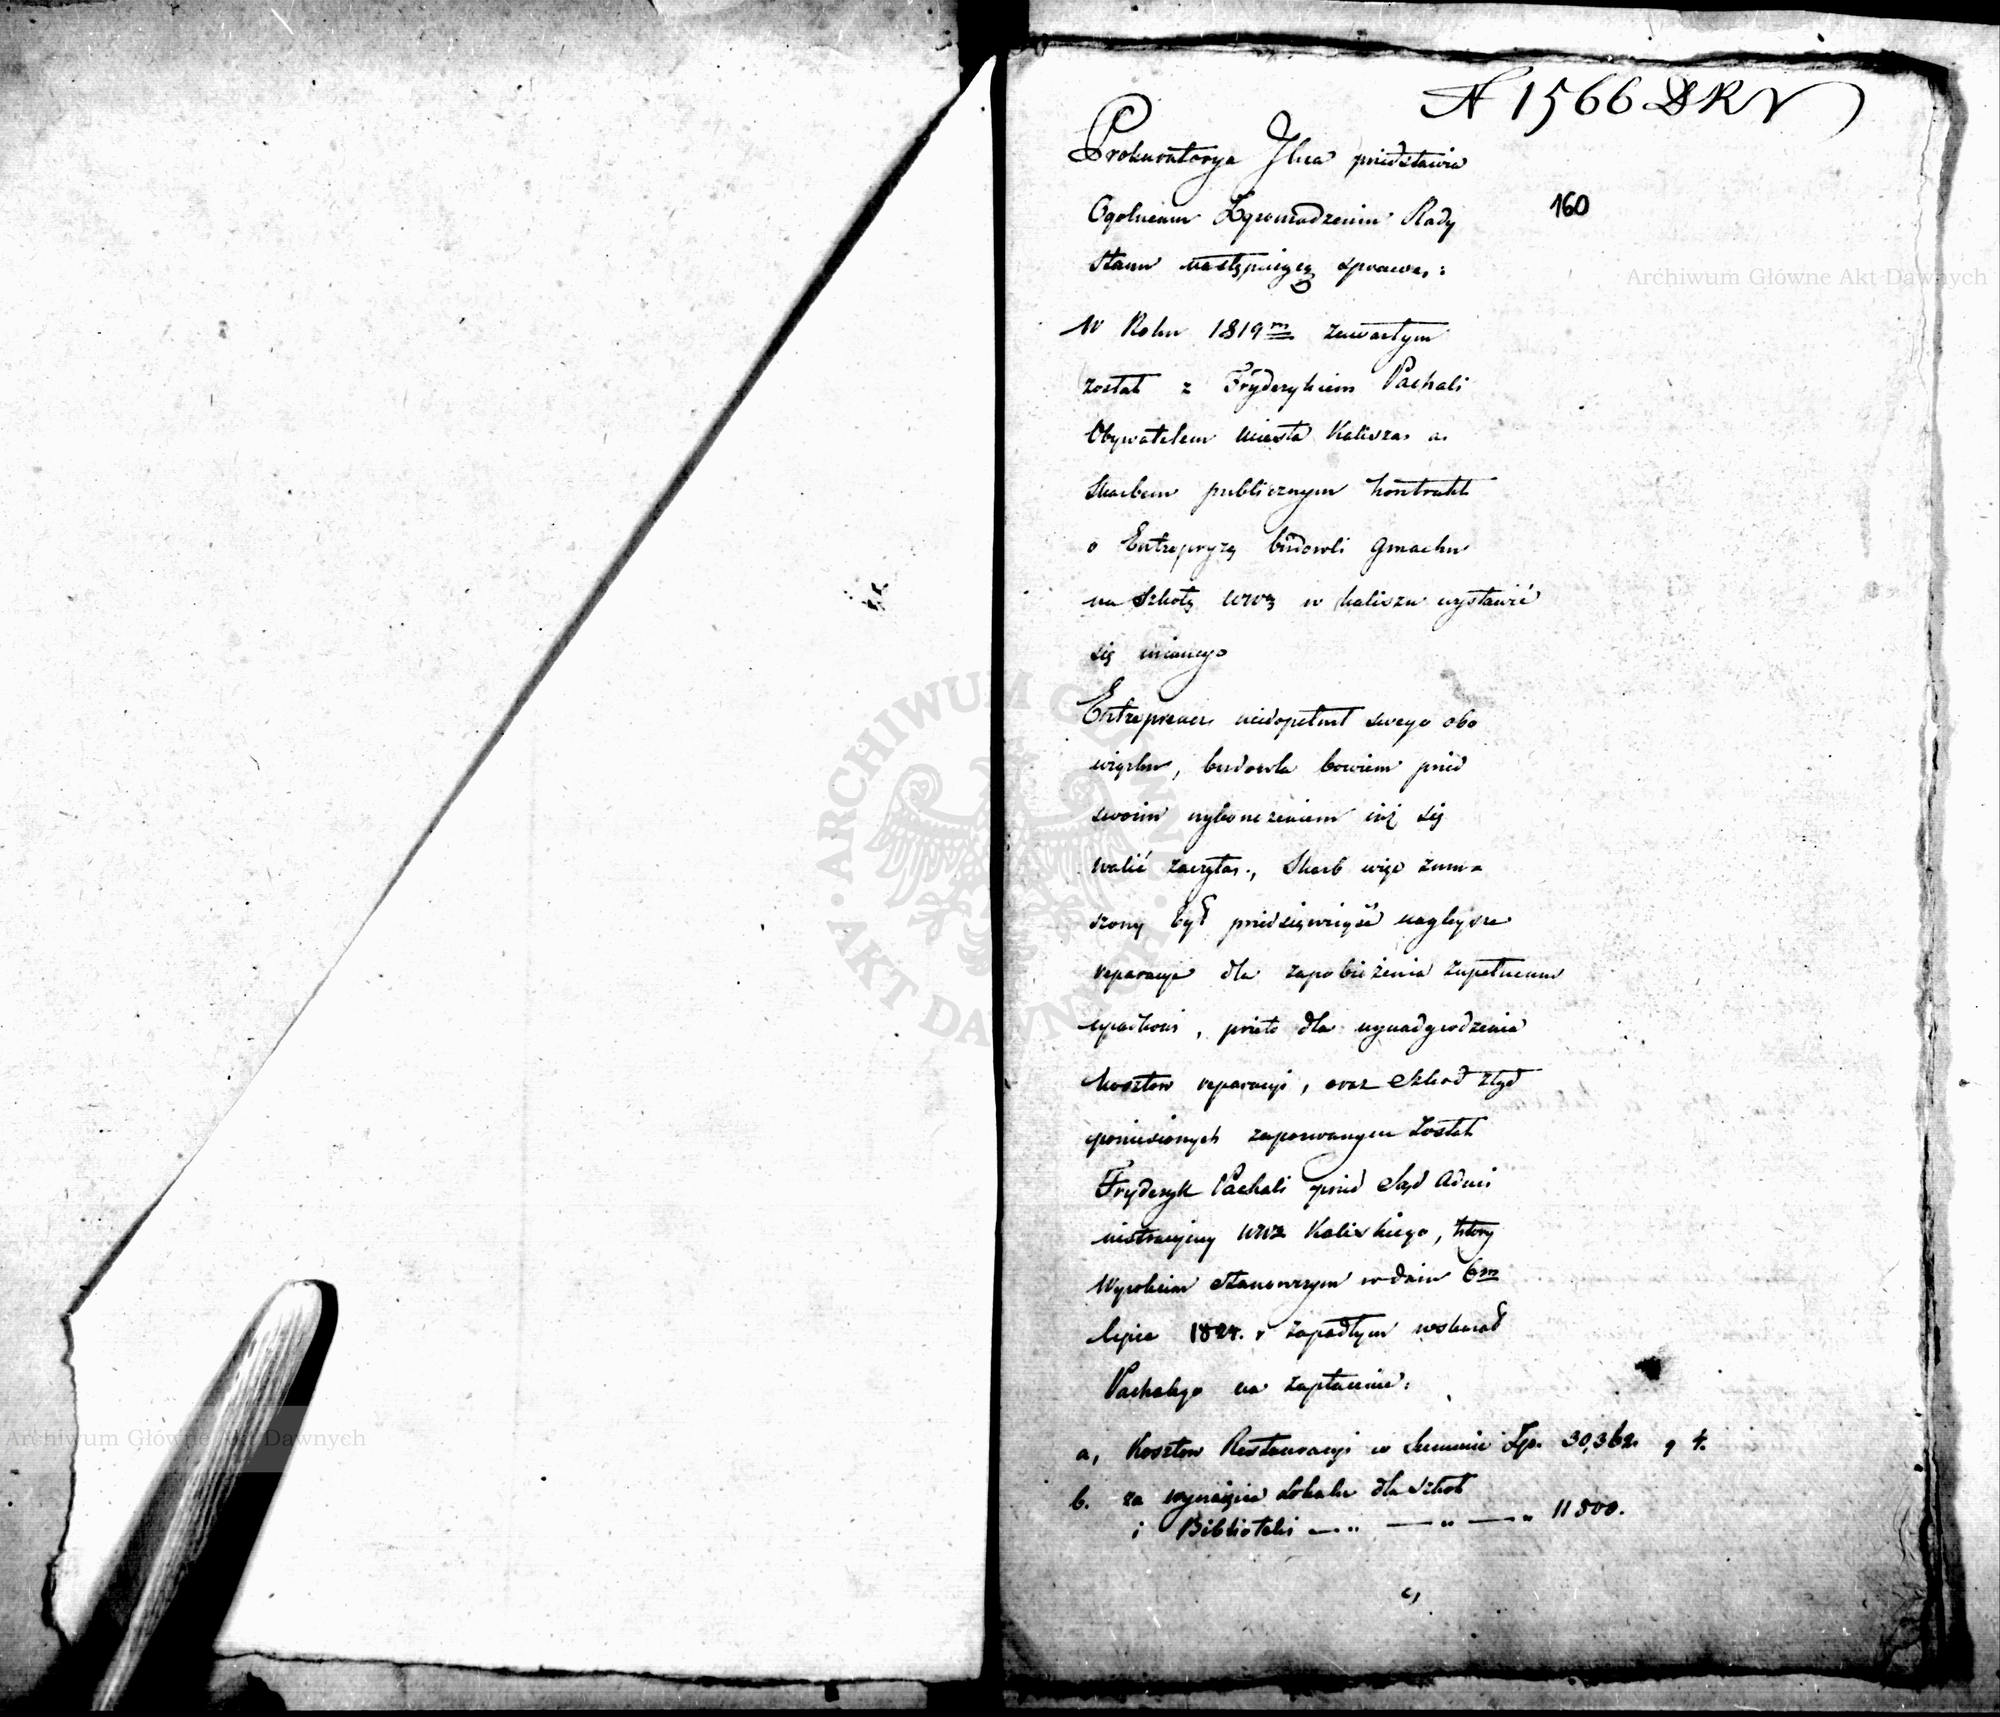 N 1566 DKR
Prokuratorya Jlna przedstawia
160
Ogolnemu Zgromadzeniu Rady
Stanu następuiącą sprawę:
Archiwum Główne Akt Dawnych
W Roku 1819m zawartym
został z Fryderykiem Pachali
Obywatelem miasta Kalisza a
Skarbem publicznym kontrakt
o Entrepryzę budowli Gmachu
na Szkołę Wwą w Kaliszu wystawić
się mianego
Entreprener niedopełnił swego obo
wiązku, budowla bowiem przed
swoim wykonczeniem iuż się
walić zaczęła, Skarb więc zmu-
szony był przedsięwziąść nagleysze
reparacye dla zapobieżenia zupełnemu
upadkowi, przeto dla wynadgrodzenia
kosztow reparacyi, oraz szkod ztąd
poniesionych zapozwanym został
Fryderyk Pachali przed Sąd Admi
nistracyiny Wwa Kaliskiego, ktory
Wyrokiem stanowczym w dniu 6m
lipca 1824. r zapadłym wskazał
Pachalego na zapłacenie:
a, Kosztow Restauracyi w Summie Złp. 30,362. g 4.
b. za wynaięcie lokalu dla szkoł
i Biblioteki — " — " — " 11500.
c,
ARCHIWUM GŁÓWNE AKT DAWNYCH
Archiwum Główne Akt Dawnych